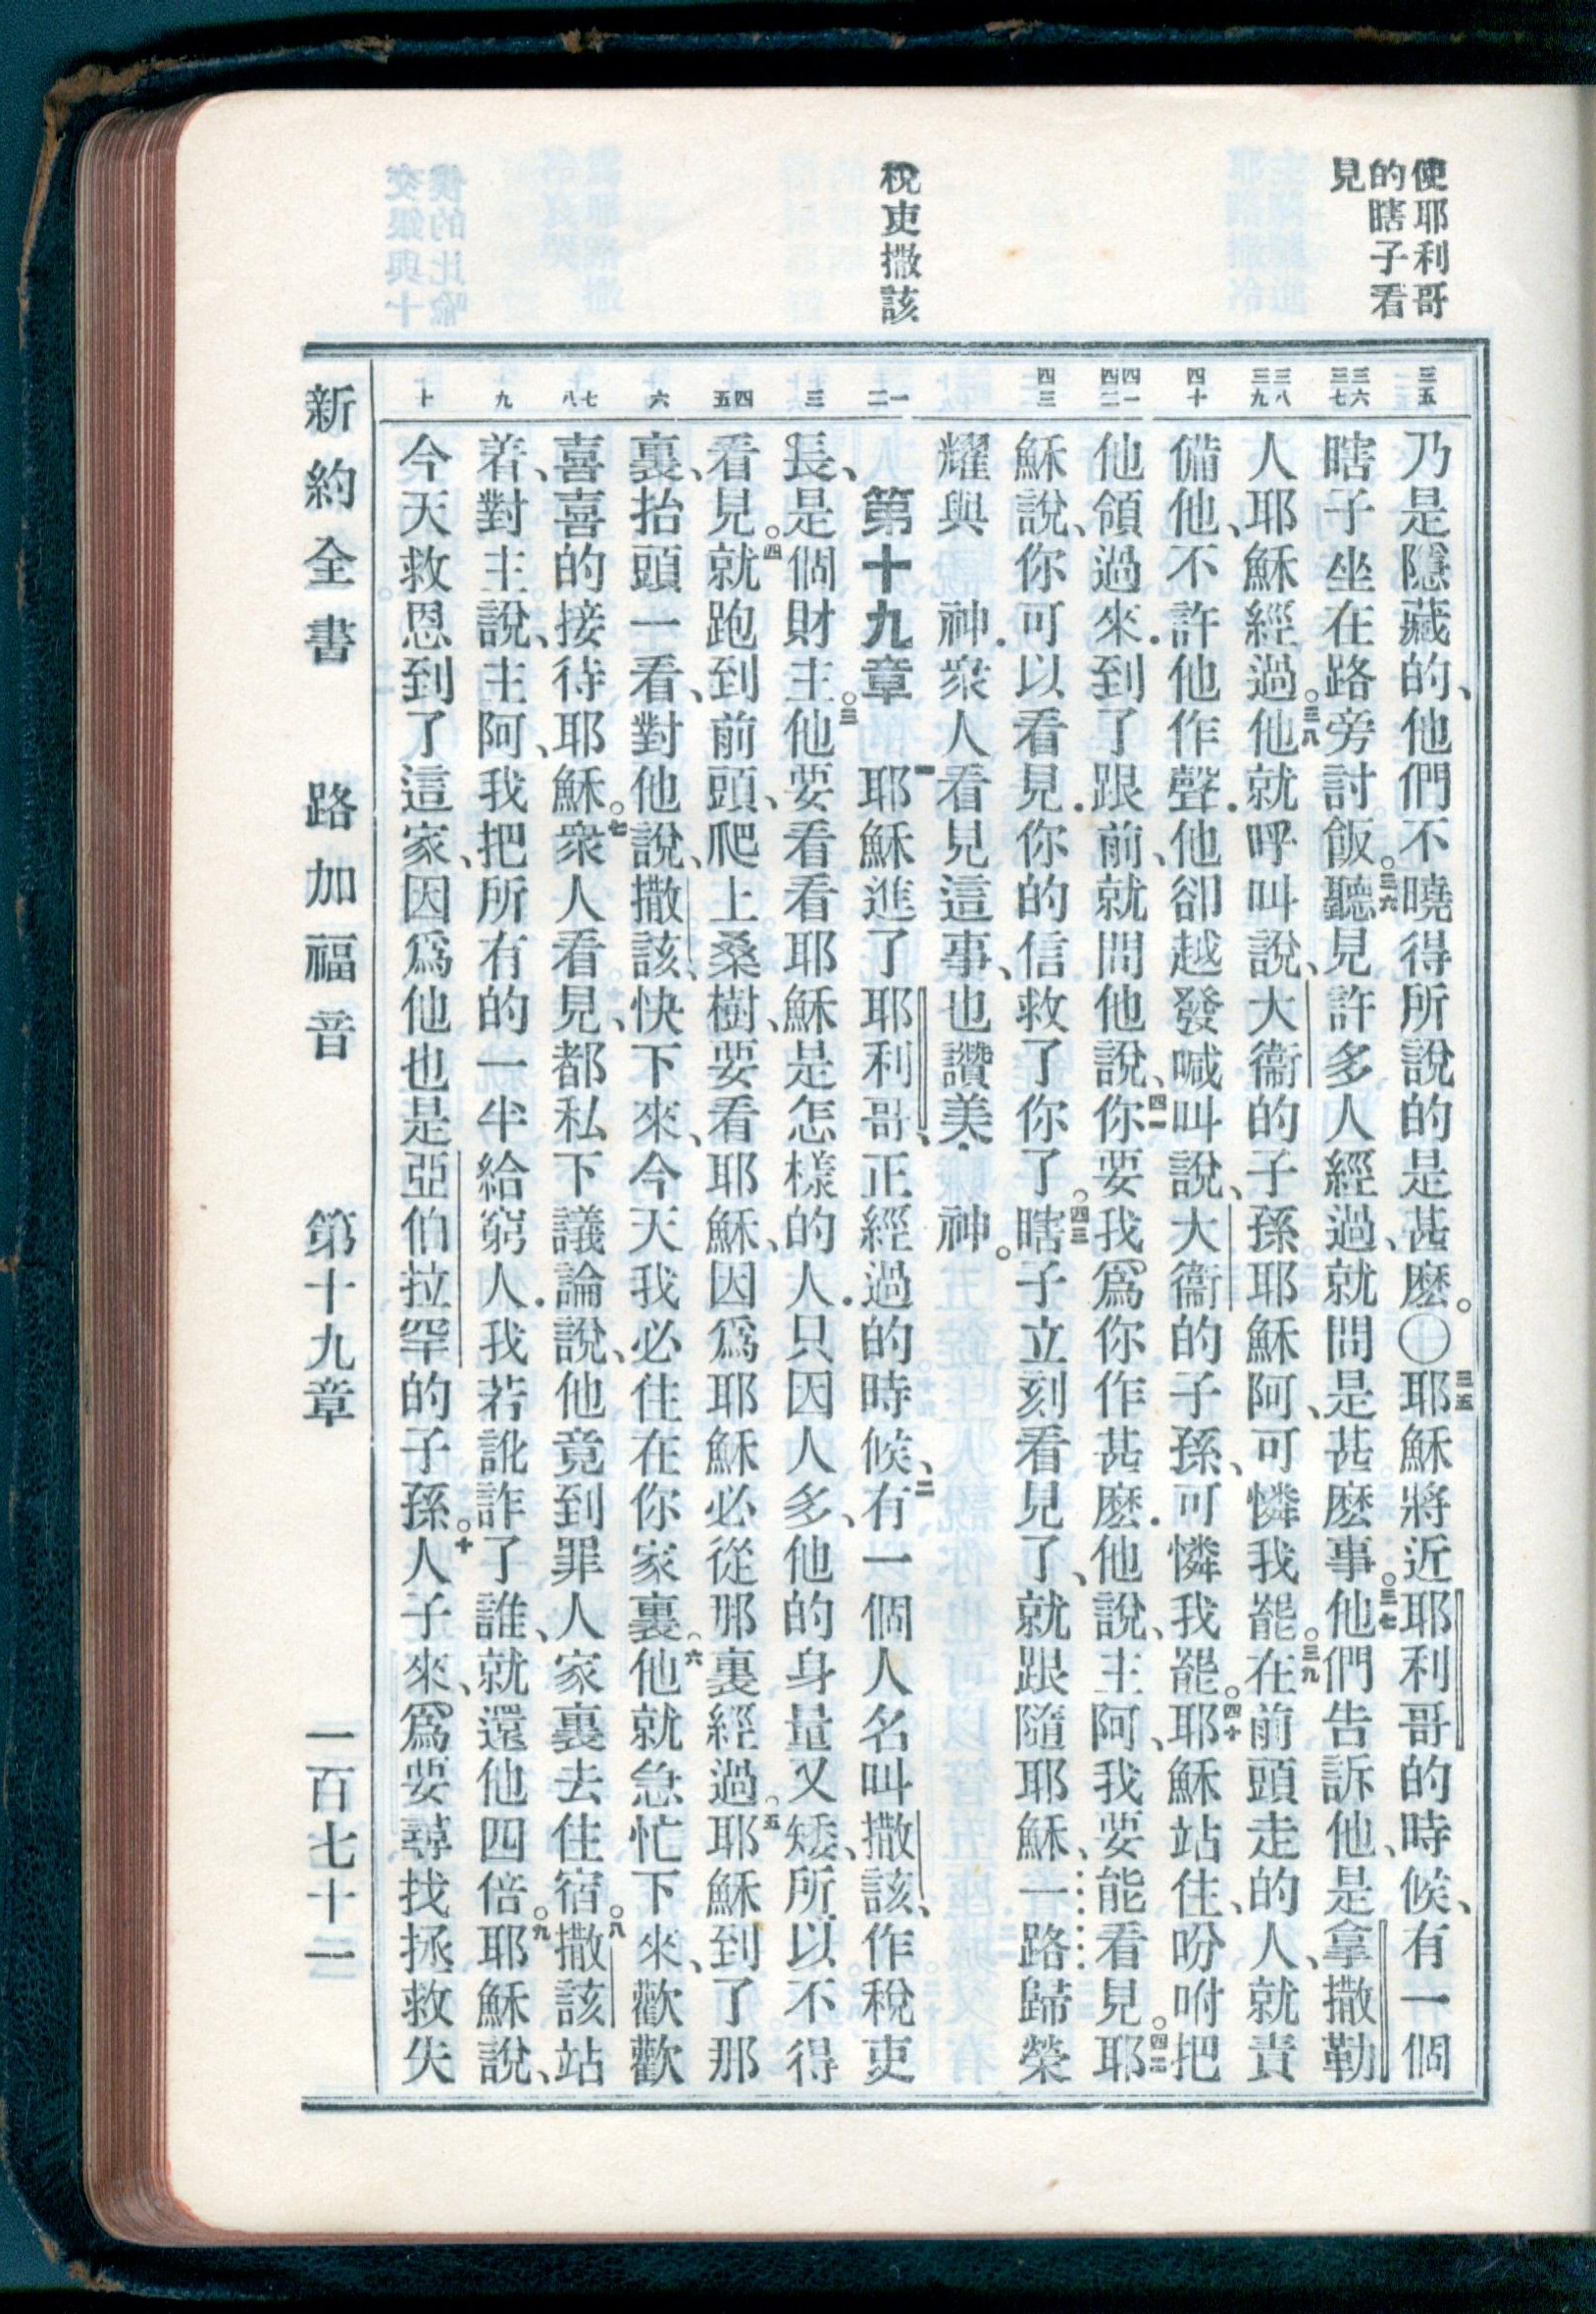 使耶利哥
的瞎子看
見
稅吏撒該
三五
三六
三七
三八
三九
四十
四一
四二
四三
一
二
三
四
五
六
七
八
九
十
乃是隱藏的、他們不曉得所說的是甚麽。〇三五耶穌將近耶利哥的時候、有一個
瞎子坐在路旁討飯。三六聽見許多人經過、就問是甚麽事。三七他們告訴他、是拿撒勒
人耶穌經過。三八他就呼叫說、大衞的子孫耶穌阿、可憐我罷。三九在前頭走的人、就責
備他、不許他作聲．他卻越發喊叫說、大衞的子孫、可憐我罷。四十耶穌站住、吩咐把
他領過來．到了跟前、就問他說、四一你要我爲你作甚麽．他說、主阿、我要能看見。四二耶
穌說、你可以看見．你的信救了你了。四三瞎子立刻看見了、就跟隨耶穌、一路歸榮
耀與　神．衆人看見這事、也讚美．神。
第十九章　一耶穌進了耶利哥、正經過的時候、二有一個人名叫撒該、作稅吏
長、是個財主。三他要看看耶穌是怎樣的人．只因人多、他的身量又矮、所以不得
看見。四就跑到前頭、爬上桑樹、要看耶穌、因爲耶穌必從那裏經過。五耶穌到了那
裏、抬頭一看、對他說、撒該、快下來、今天我必住在你家裏。六他就急忙下來、歡歡
喜喜的接待耶穌。七衆人看見、都私下議論說、他竟到罪人家裏去住宿。八撒該站
着、對主說、主阿、我把所有的一半給窮人．我若訛詐了誰、就還他四倍。九耶穌說、
今天救恩到了這家、因爲他也是亞伯拉罕的子孫。十人子來、爲要尋找拯救失
新約全書　路加福音　第十九章　一百七十一